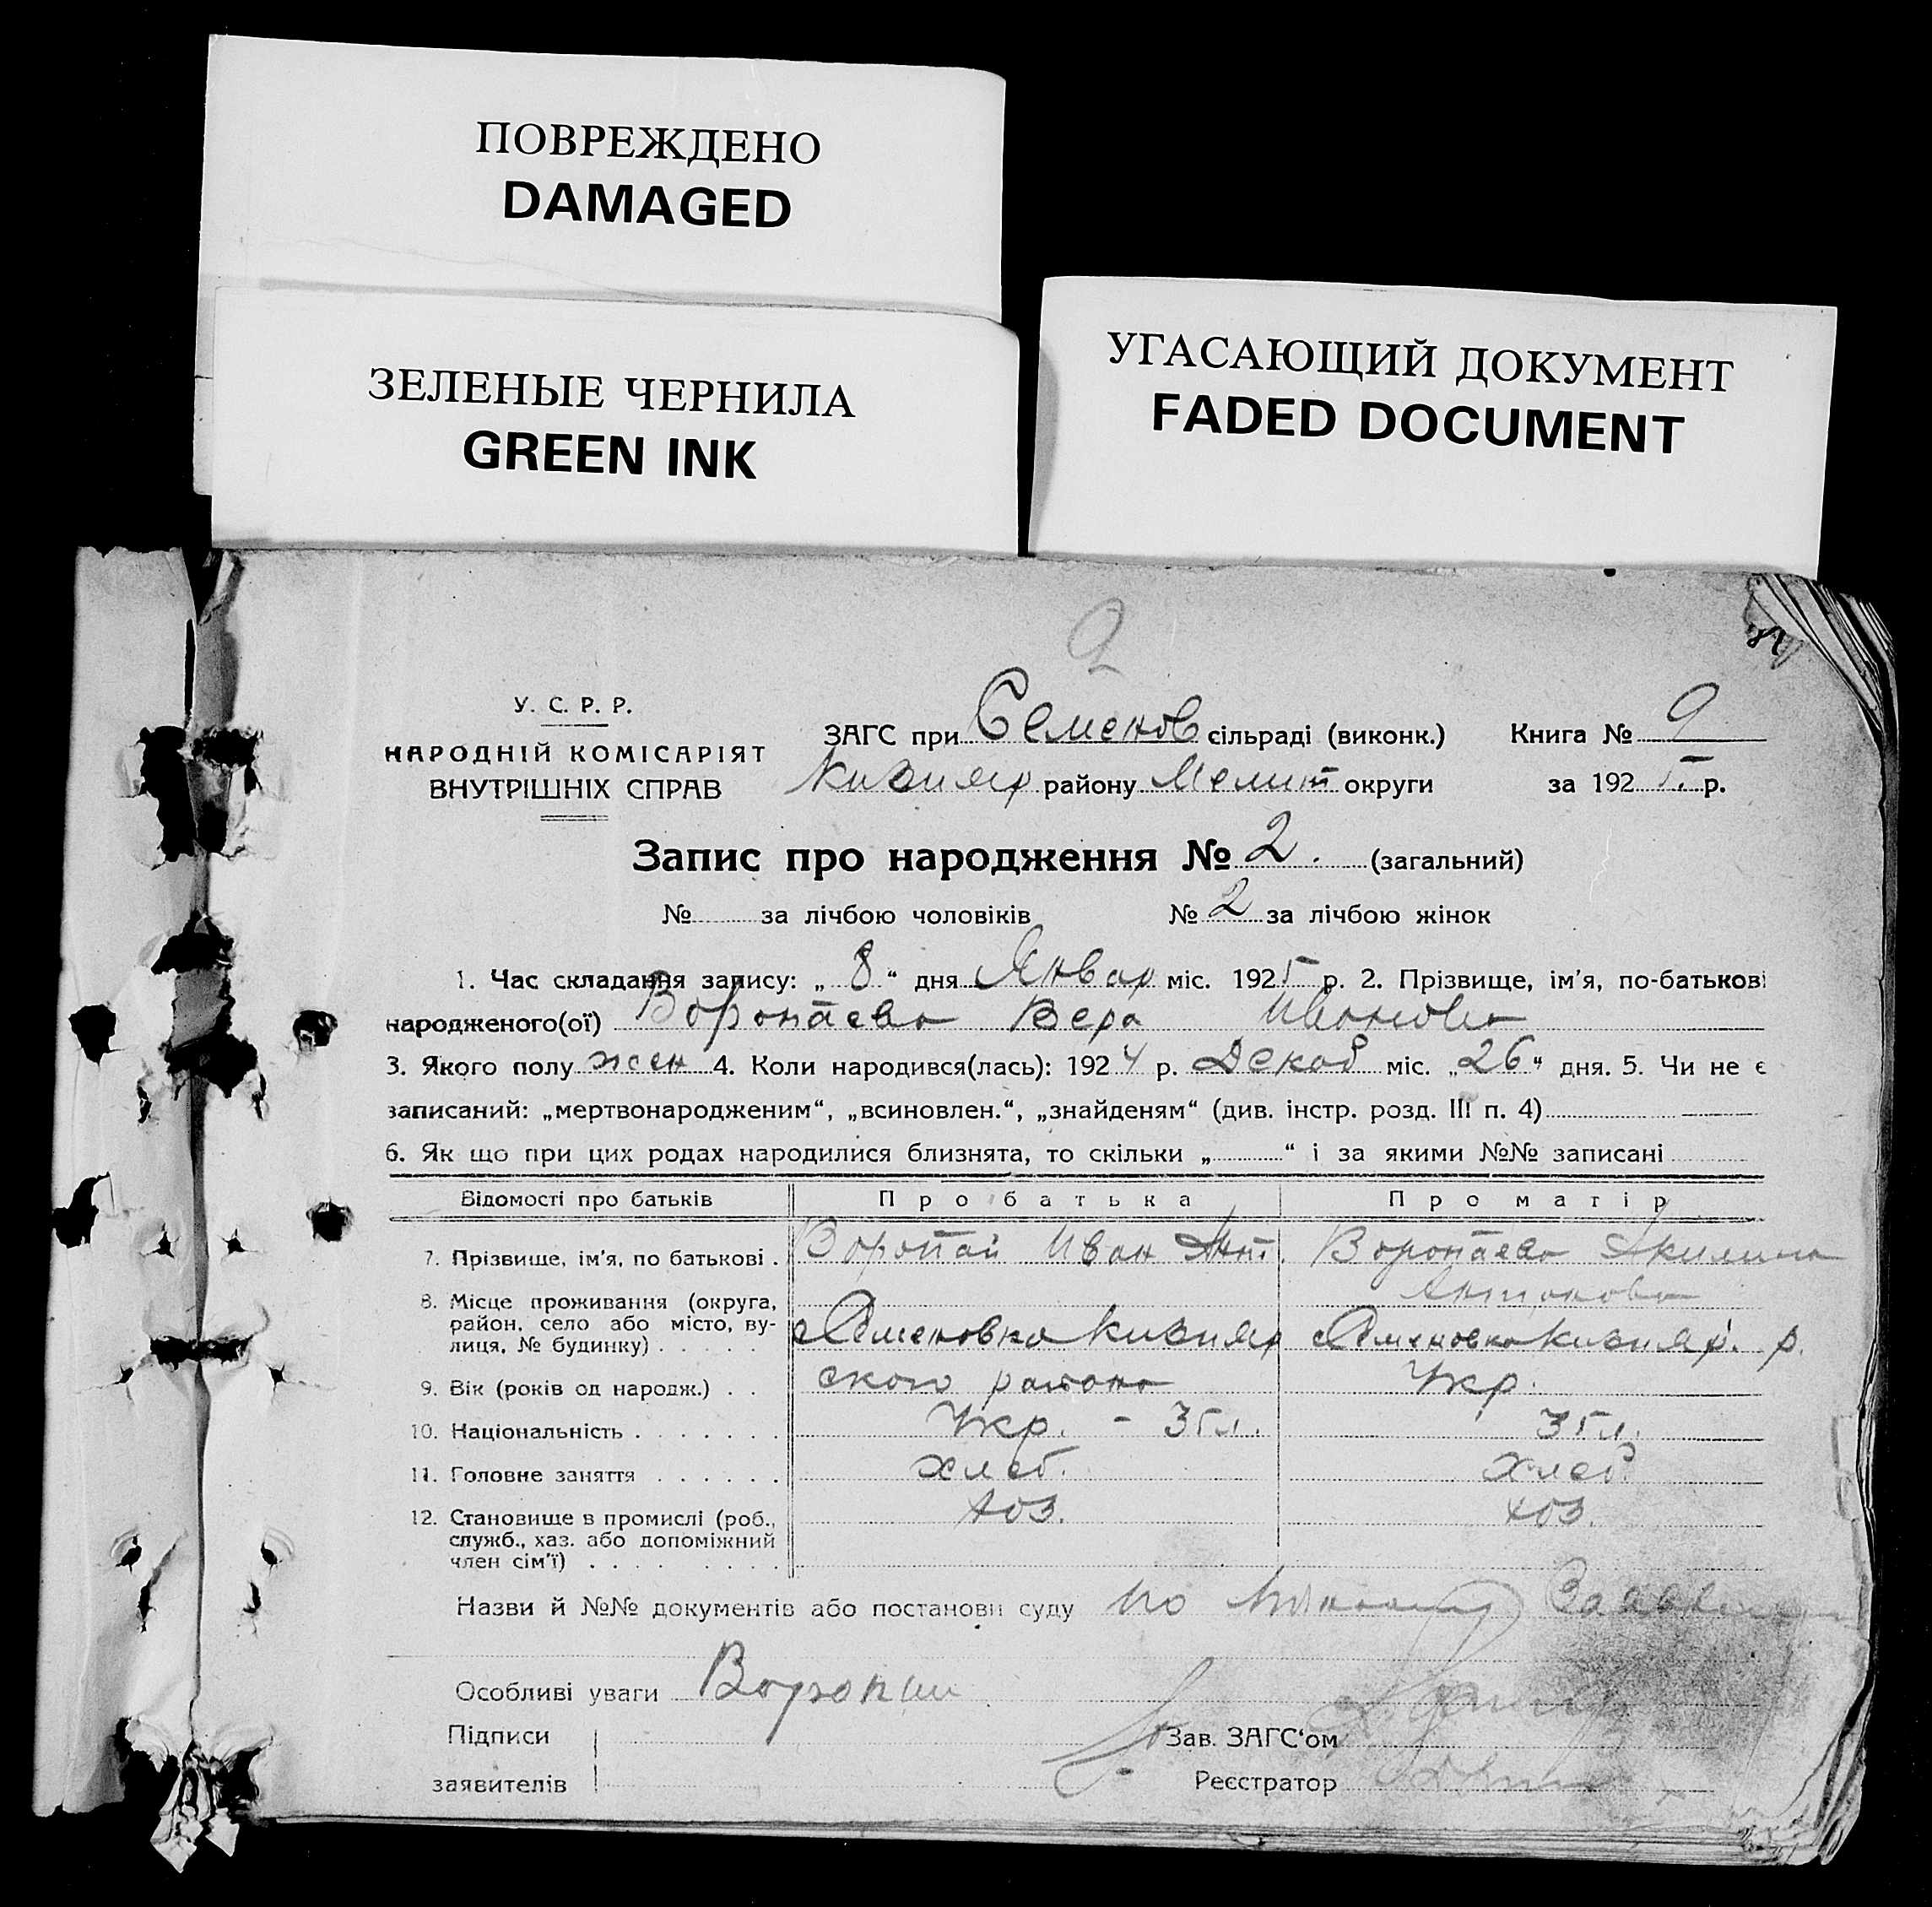 ПОВРЕЖДЕНО
DAMAGED
ЗЕЛЕНЫЕ ЧЕРНИЛА
GREEN INK
УГАСАЮЩИЙ ДОКУМЕНТ
FADED DOCUMENT
2
У. С. Р. Р.
НАРОДНІЙ КОМІСАРІЯТ
ВНУТРІШНІХ СПРАВ
ЗАГС при Семенов сільраді (виконк.) Книга № 9
Кизияр району Мелит округи за 1925. р.
Запис про народження № 2. (загальний)
№ за лічбою чоловіків № 2 за лічбою жінок
1. Час складання запису: „8“ дня Январ міс. 1925 р. 2. Прізвище, ім'я, по-батькові
народженого(ої) Воропаева Вера Ивановна
3. Якого полу жен 4. Коли народився(лась): 1924 р. Декаб міс. „26“ дня. 5. Чи не є
записаний: „мертвонародженим“, „всиновлен.“, „знайденям“ (див. інстр. розд. III п. 4)
6. Як що при цих родах народилися близнята, то скільки „ “ і за якими №№ записані
Відомості про батьків Про батька Про матір
7. Прізвище, ім'я, по батькові . Воропай Иван Ант. Воропаева Акилина
Антонова
8. Місце проживання (округа,
район, село або місто, ву-
лиця, № будинку) . . . . . Семеновка Кизияр Семеновка Кизияр. р.
9. Вік (років од народж.) . . ского района Укр.
10. Національність . . . . . . . Укр. - 35л. 35л.
11. Головне заняття . . . . . . хлеб. хлеб.
12. Становище в промислі (роб.,
служб., хаз. або допоміжний
член сім'ї) . . . . . . . . . хоз. хоз.
Назви й №№ документів або постанови суду по
Особливі уваги Воропай
Підписи
заявителів
Зав. ЗАГС'ом
Реєстратор